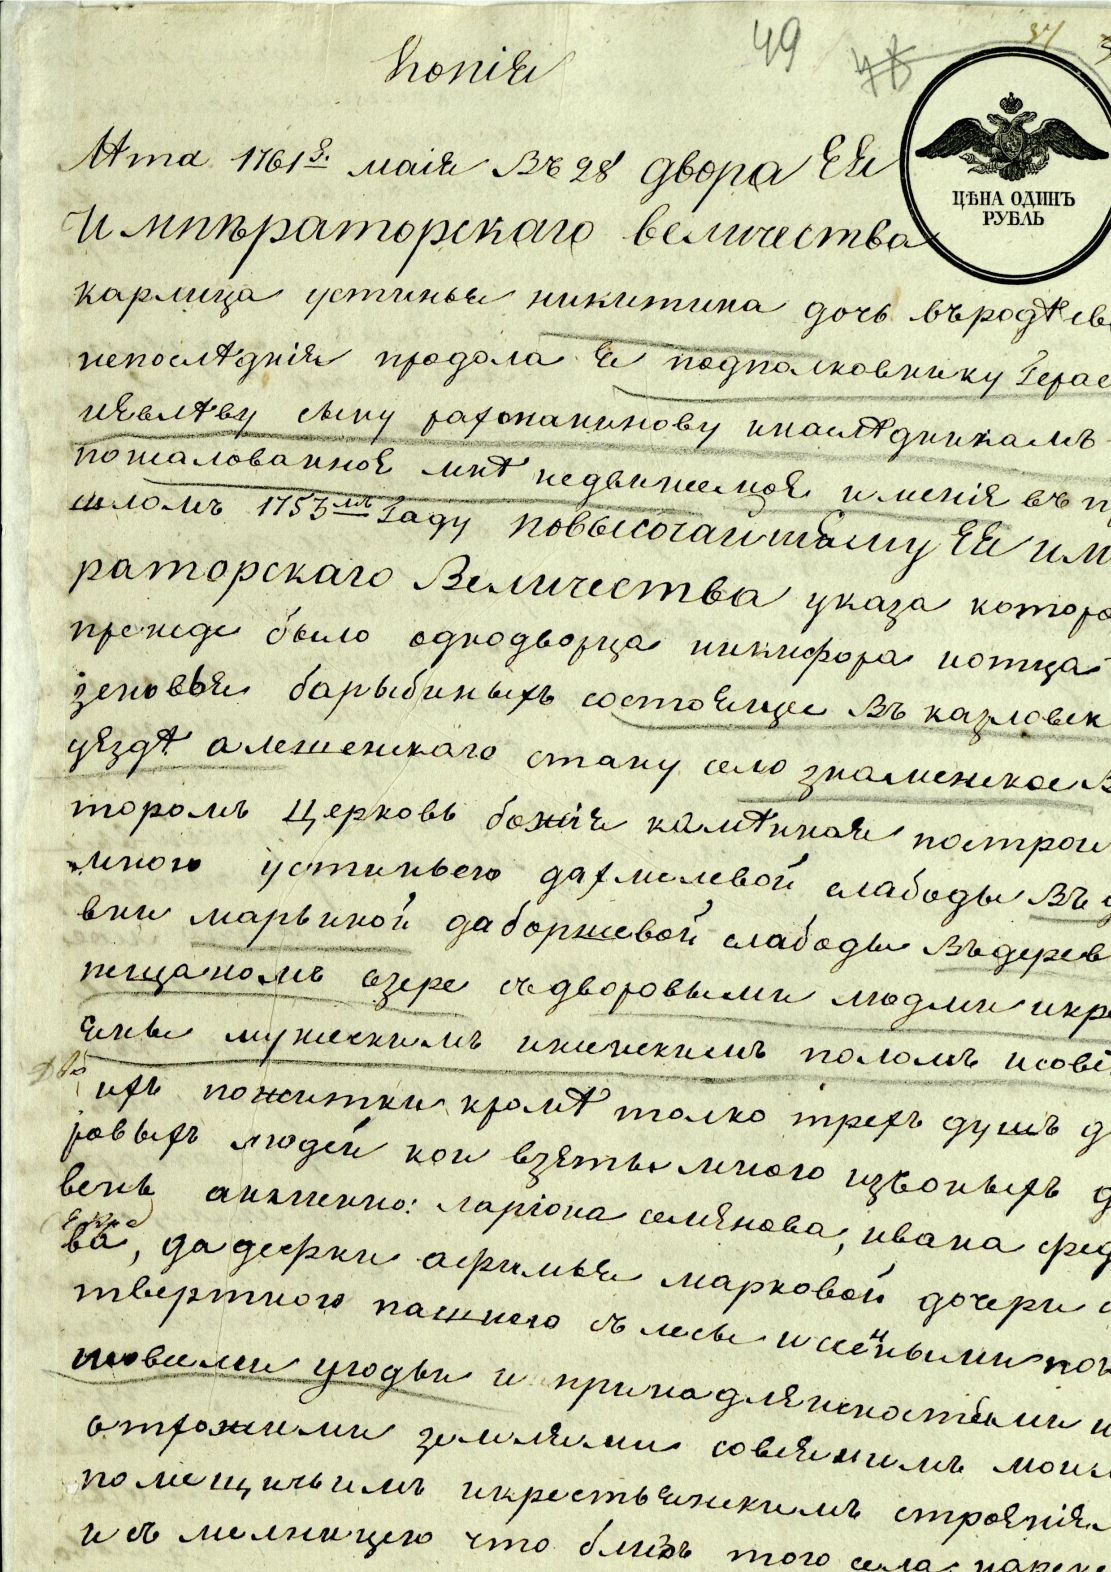 Копія
49
ЦѢНА ОДИНЪ
РУБЛЬ
Лѣта 1761 г. маія Въ 28 двора ЕЯ
Импѣраторскаго величества
карлица устинья никитина дочь въродѣ
непослѣдняя продала я подполковнику Герас
сыну рахманинову инаслѣдникамъ
пожалованное мнѣ недвижемоя именія въ
шломъ 1753мъ Гаду повысочайшему ЕЯ им
раторскаго Величества указа которо
прежде было однодворца никифора иотца
зеновья барыбиныхъ состоящее Въ казловск
уездѣ алешенскаго стану село знаменское в
торомъ Церковь божія камѣнная построи
мною устиньею дахмелевой слабоды Въ д
вни марьиной даборщевой слабоды Въдерев
песчаномъ озере съдворовыми людми икре
яны мужескимъ иженскимъ поломъ исовс
ихъ пожитки кромѣ толко трехъ душъ д
ровыхъ людей кои взяты мною изъоныхъ д
вень аимянно: ларіона семянова, ивана фед
ва, дадефки афимьи марковой дочери с
твертною пашнею съ лесы исенными пок
совсеми угодьи и принадляжностьми и
отхожими землями совсякимъ моим
помещичьимъ икрестьянскимъ строянія
и съ мелницею что близъ того села